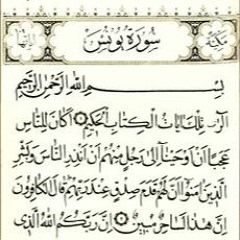 مكية
سورة يونس
آياتها
بسم الله الرحمن الرحيم
الر تلك آيات الكتاب الحكيم ۝ أكان للناس
عجبا أن أوحينا إلى رجل منهم أن أنذر الناس وبشر
الذين آمنوا أن لهم قدم صدق عند ربهم قال الكافرون
إن هذا لساحر مبين ۝ إن ربكم الله الذي